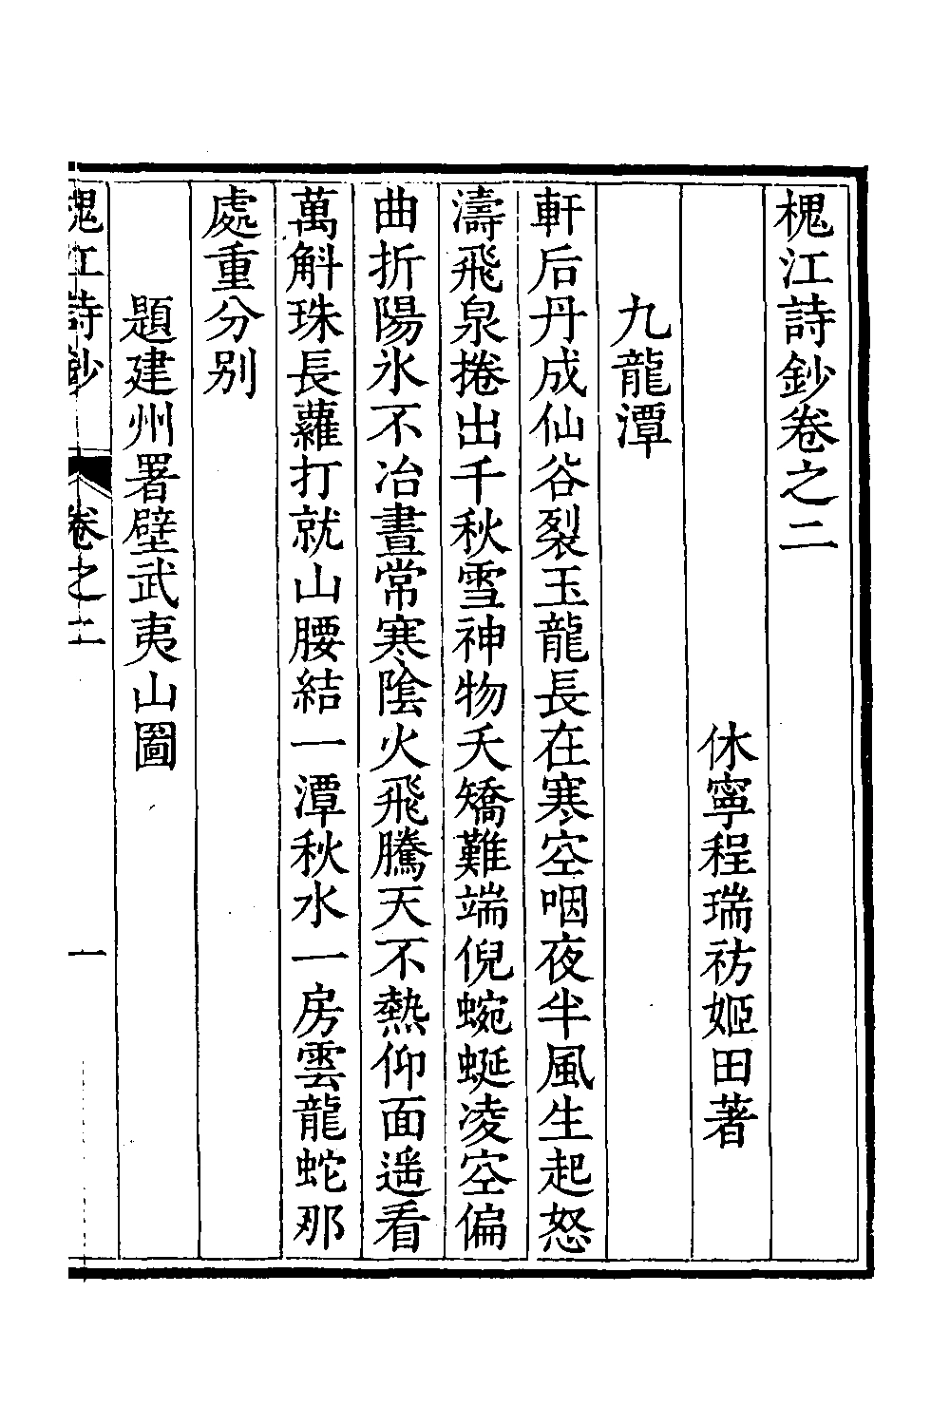 槐江詩鈔卷之二
休寧程瑞祊姬田著
九龍潭
軒后丹成仙谷裂玉龍長在寒空咽夜半風生起怒
濤飛泉捲出千秋雪神物夭矯難端倪蜿蜒凌空偏
曲折陽氷不冶晝常寒陰火飛騰天不熱仰面遥看
萬斛珠長蘿打就山腰結一潭秋水一房雲龍蛇那
處重分别
題建州署壁武夷山圖
槐江詩鈔
卷之二
一